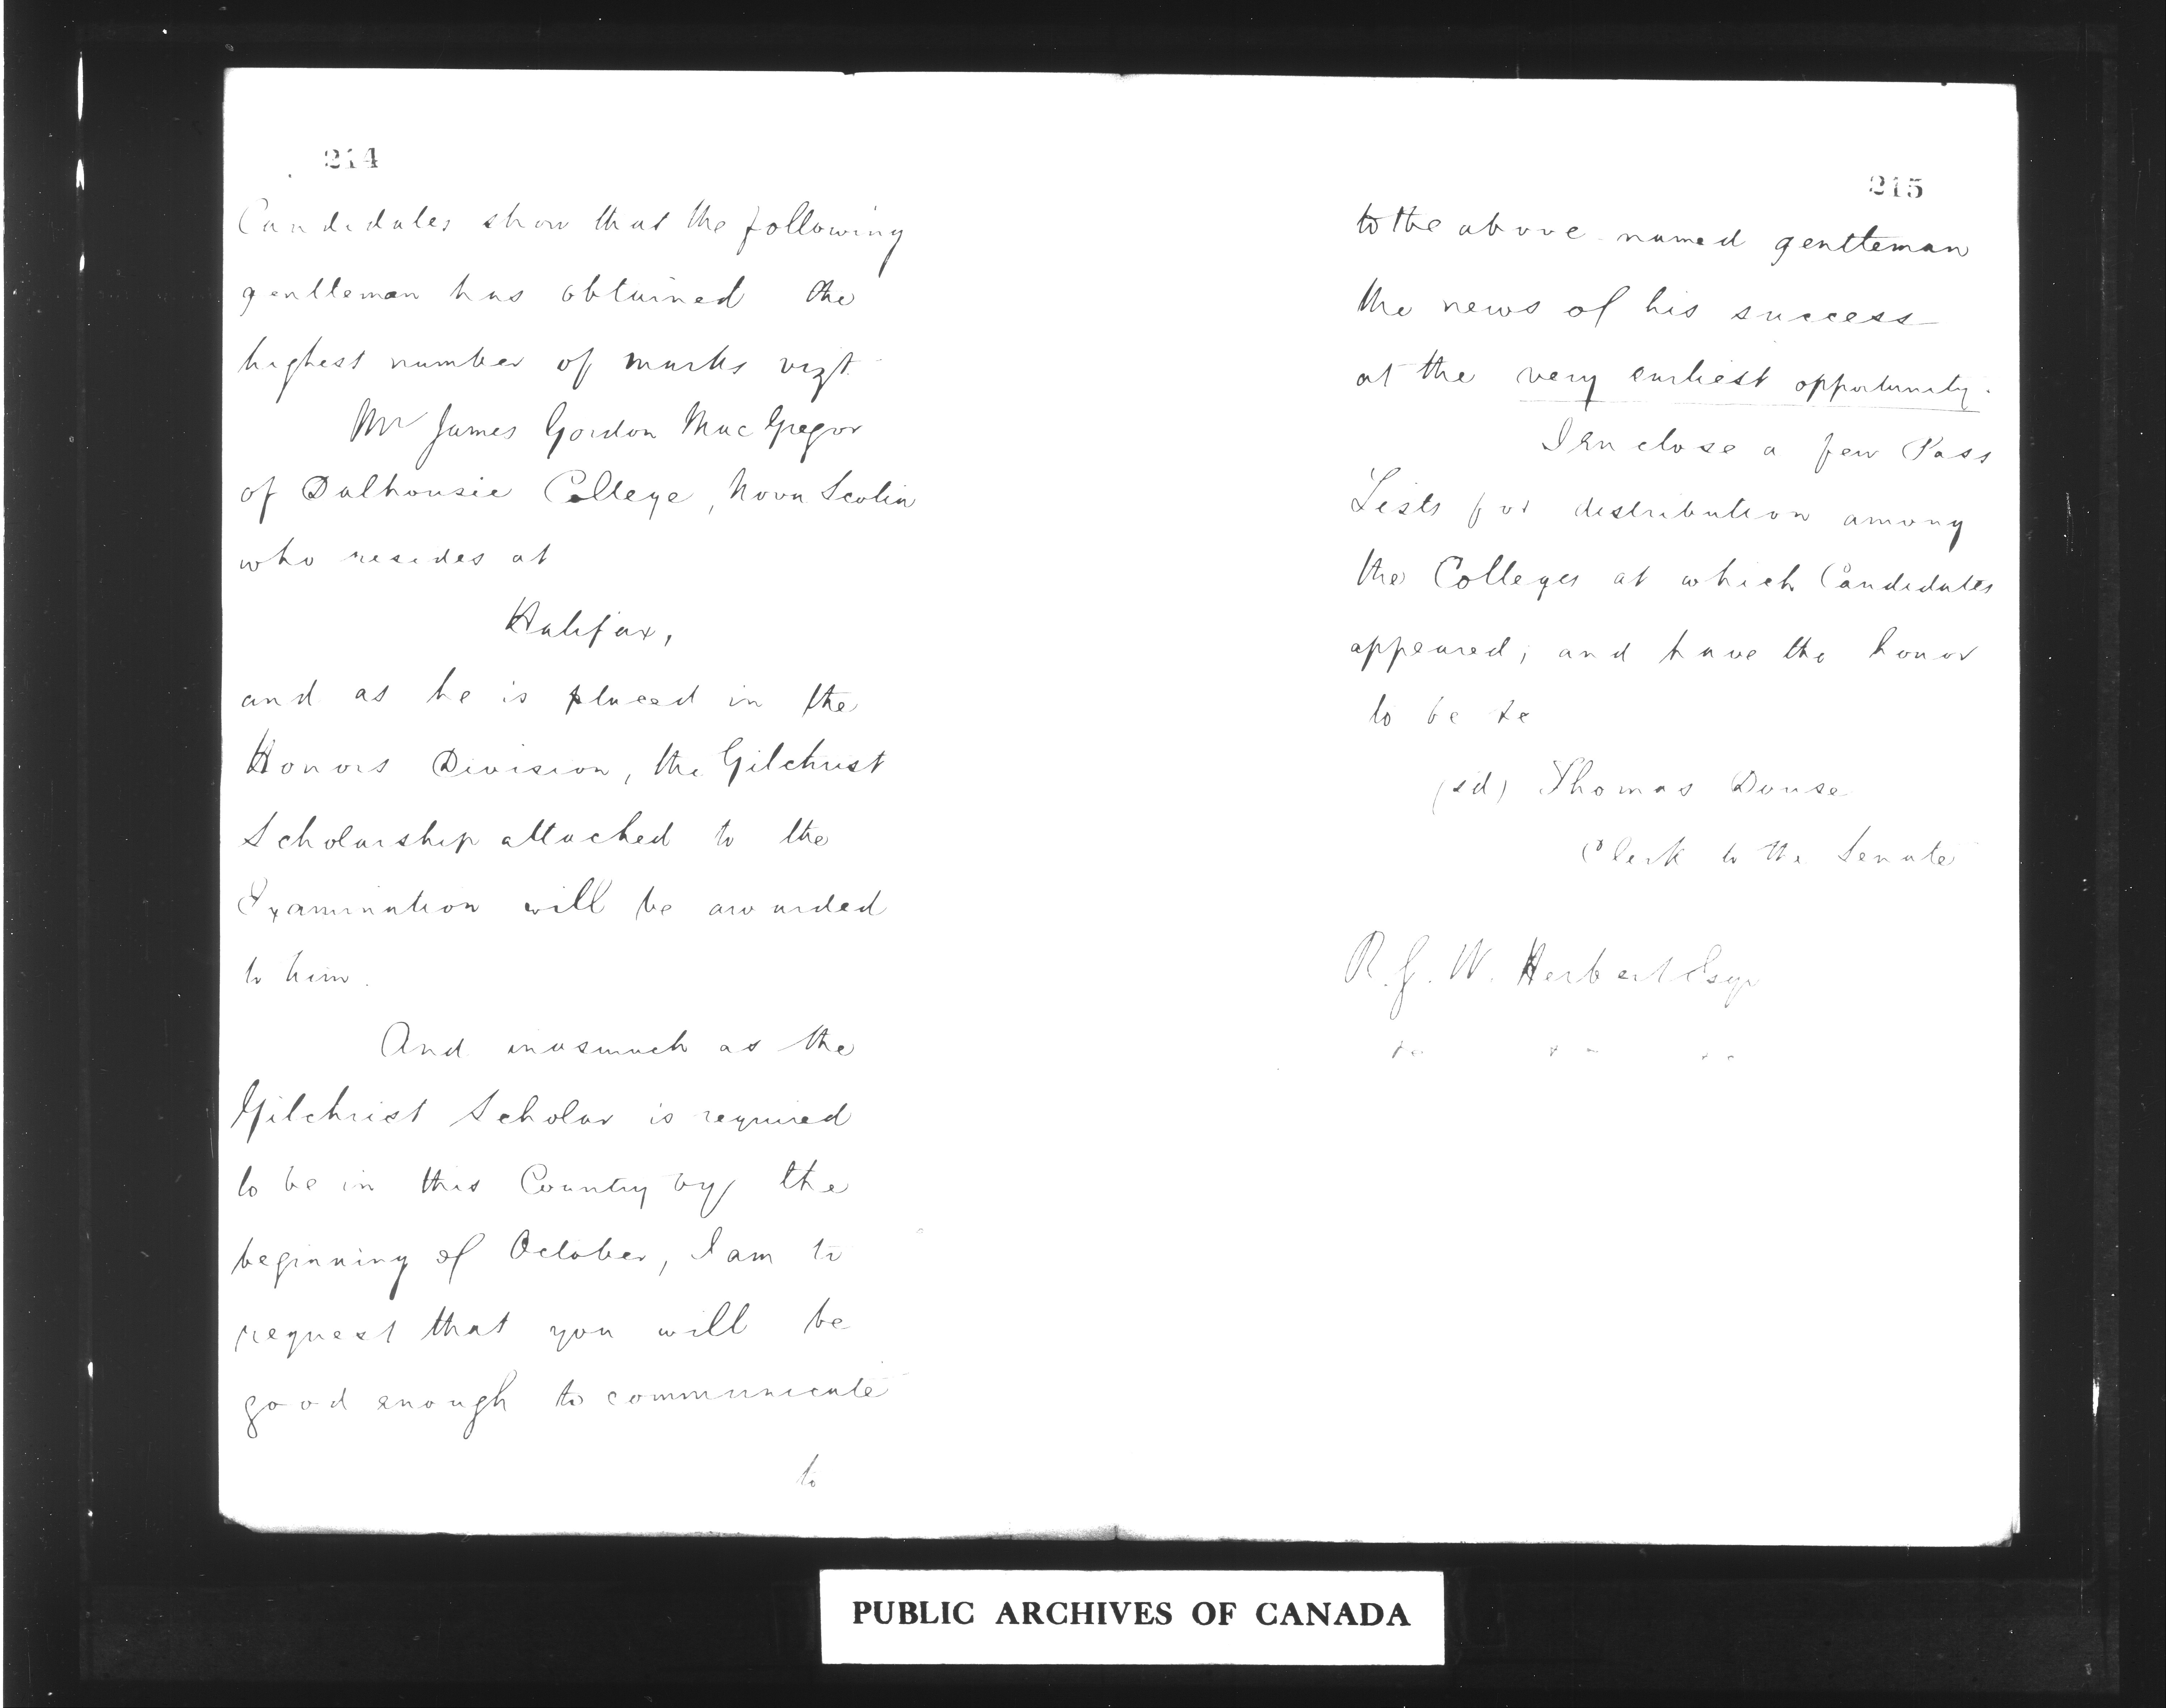 214
Candidates show that the following
gentleman has obtained the
highest number of marks vizt
Mr James Gordon MacGregor
of Dalhousie College, Nova Scotia
who resides at
Halifax,
and as he is placed in the
Honors Division, the Gilchrist
Scholarship attached to the
Examination will be awarded
to him.
And inasmuch as the
Gilchrist Scholar is required
to be in this Country by the
beginning of October, I am to
request that you will be
good enough to communicate
to
215
to the above named gentleman
the news of his success
at the very earliest opportunity.
I enclose a few Pass
Lists for distribution among
the Colleges at which Candidates
appeared; and have the honor
to be &c
(sd) Thomas Douse
Clerk to the Senate
R. G. W. Herbert Esqr
&c &c &c
PUBLIC ARCHIVES OF CANADA